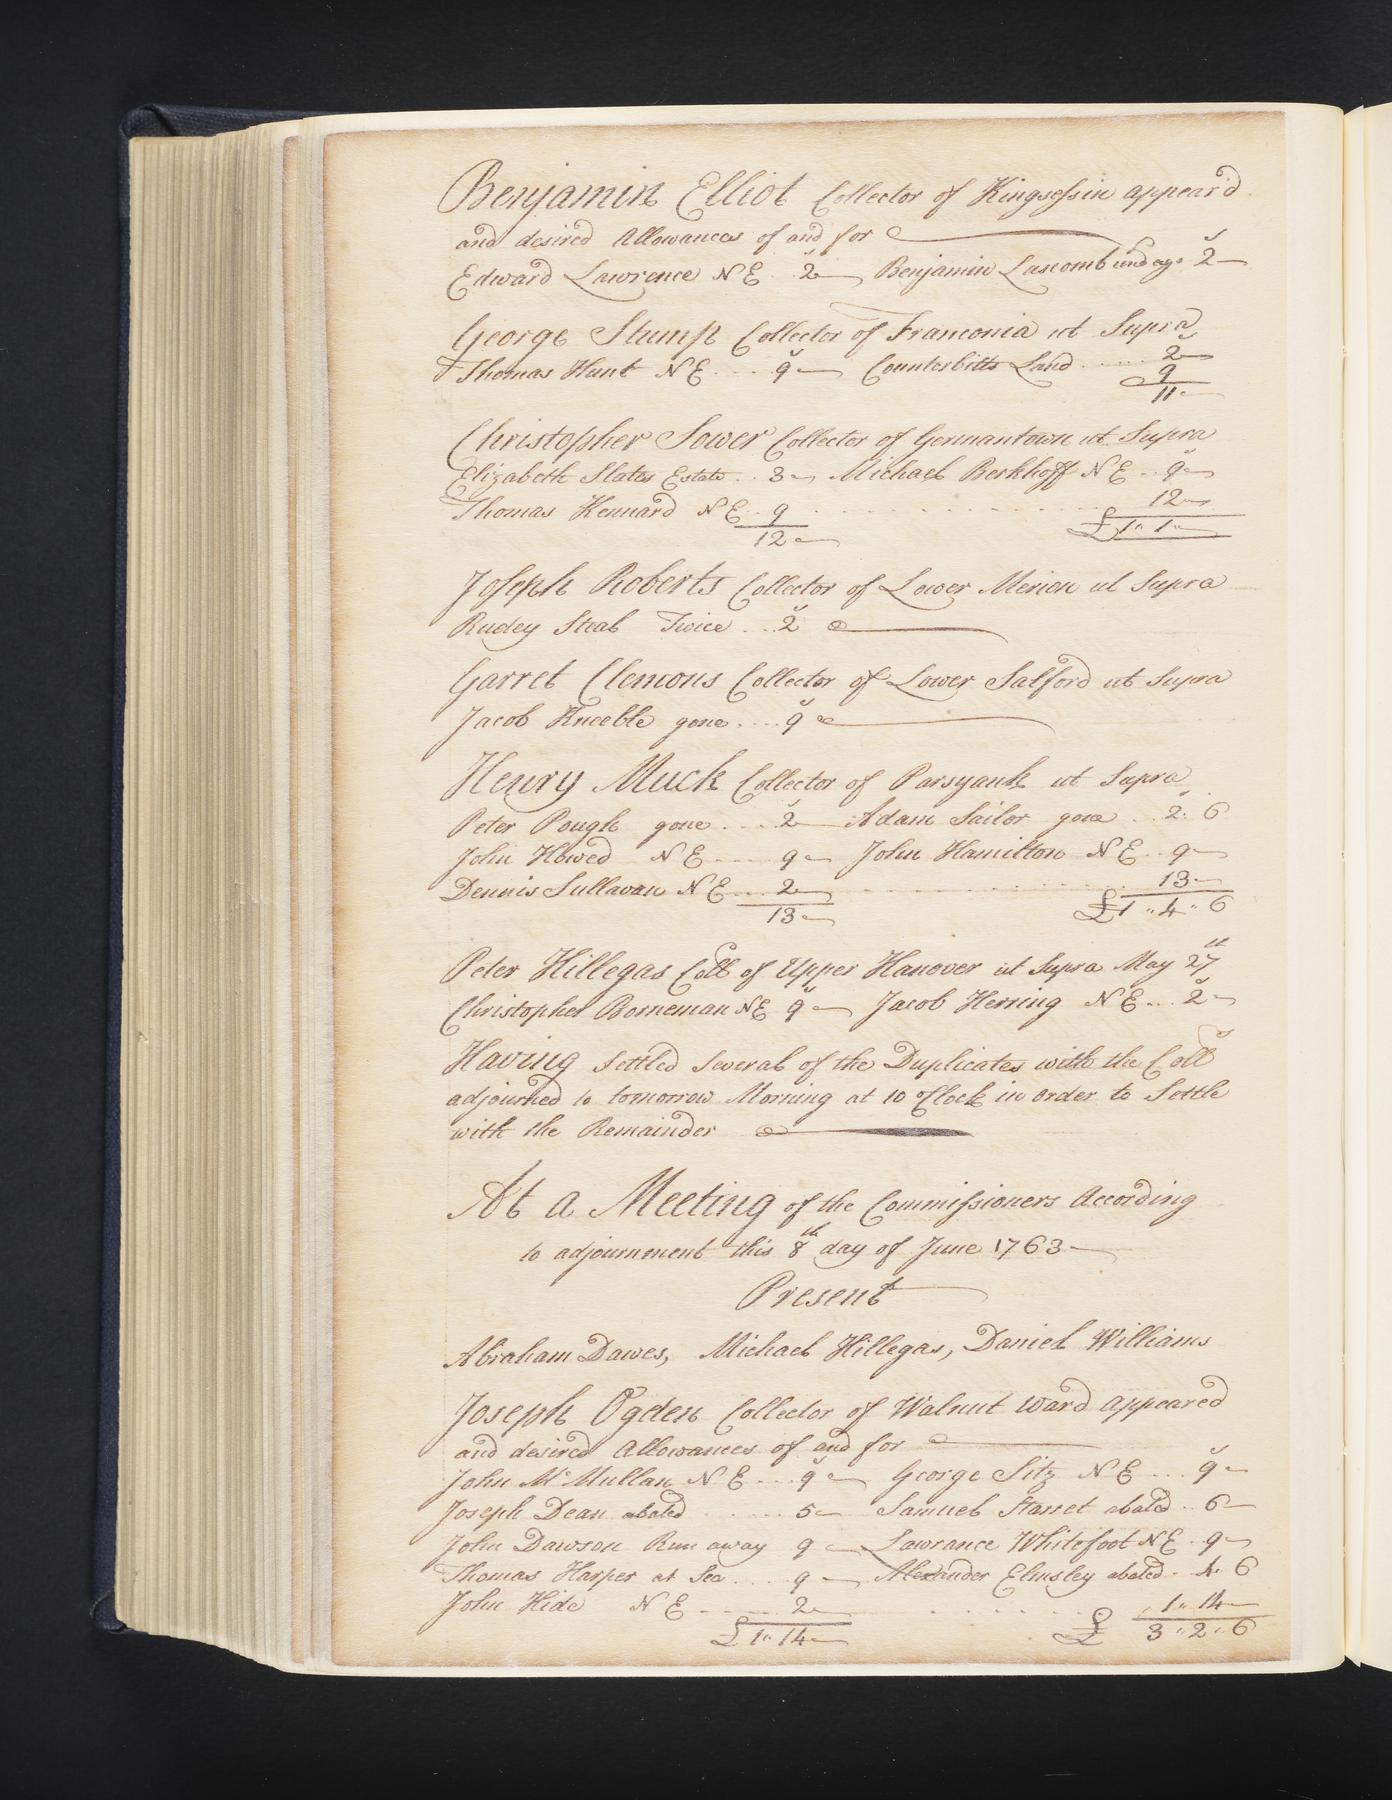 Benjamin Elliot Collector of Kingsessin appear'd
and desired Allowances of and for
Edward Lawrence N E .. 2 Benjamin Lascomb undage 2
George Stump Collector of Franconia ut Supra
Thomas Hunt N E ... 9 Counterbitts Land ..... 2
9
11
Christopher Sower Collector of Germantown ut Supra
Elizabeth Slates Estate .. 3 Michael Berkhoff N E .. 9
Thomas Kennard N E .. 9 ........ 12
12 £1 " 1
Joseph Roberts Collector of Lower Merion ut Supra
Rudey Steal Twice ... 2
Garret Clemons Collector of Lower Salford ut Supra
Jacob Kneeble gone .... 9
Henry Muck Collector of Parsyank ut Supra
Peter Pough gone .... 2 Adam Sailor gone .. 2 " 6
John Howed N E .... 9 John Hamilton N E .. 9
Dennis Sullavan N E ... 2 ........ 13
13 £1 " 4 " 6
Peter Hillegas Coll of Upper Hanover ut Supra May 27th
Christopher Borneman N E 9 Jacob Herring N E ... 2
Having settled several of the Duplicates with the Collrs
adjourned to tomorrow Morning at 10 oClock in order to Settle
with the Remainder
At a Meeting of the Commissioners According
to adjournment this 8th day of June 1763
Present
Abraham Dawes, Michael Hillegas, Daniel Williams
Joseph Ogden Collector of Walnut Ward appeared
and desired Allowances of and for
John McMullan N E ... 9 George Sitz N E ... 9
Joseph Dean abated ...... 5 Samuel Harret abated .. 6
John Dawson Run away 9 Lawrance Whitefoot N E . 9
Thomas Harper at Sea ... 9 Alexander Elmsley abated . 4 " 6
John Hide N E .... 2 ........ 1 " 14
£1 " 14 £ 3 " 2 " 6